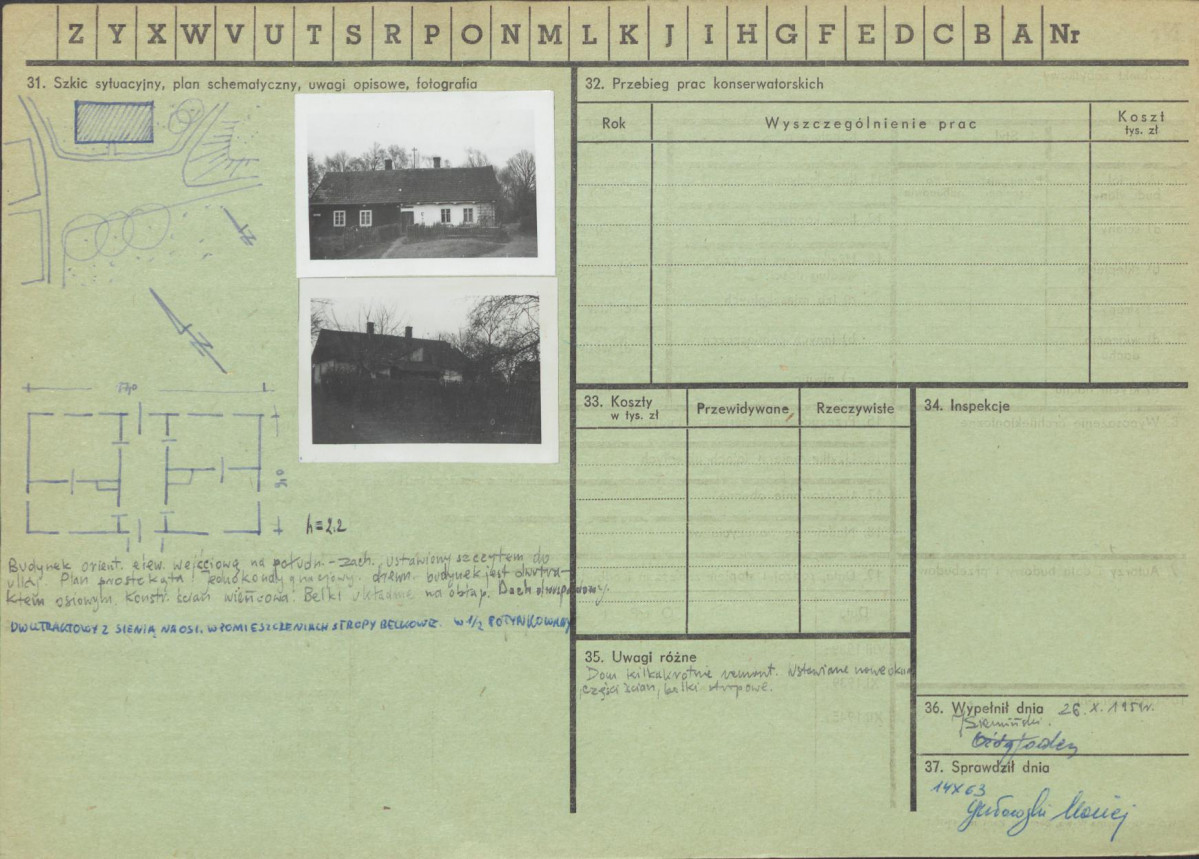 Z Y X W V U T S R P O N M L K J I H G F E D C B A Nr
31. Szkic sytuacyjny, plan schematyczny, uwagi opisowe, fotografia
h=2.2
Budynek orient. elew. wejściową na połudn.-zach. ustawiony szczytem do
ulicy. Plan prostokąta. Jednokondygnacyjowy. drewn. budynek jest dwutra-
ktem osiowym. Konstr. ścian wieńcowa. Belki układane na obłap. Dach dwuspadowy.
DWUTRAKTOWY Z SIENIĄ NA OSI. W POMIESZCZENIACH STROPY BELKOWE. W 1/2 POTYNKOWANY
32. Przebieg prac konserwatorskich
Rok
Wyszczególnienie prac
Koszt
tys. zł
33. Koszty
w tys. zł
Przewidywane
Rzeczywiste
34. Inspekcje
35. Uwagi różne
Dom kilkakrotnie remont. Wstawiane nowe okna
części ścian, belki stropowe.
36. Wypełnił dnia 26.X.195
37. Sprawdził dnia
14X63
Maciej